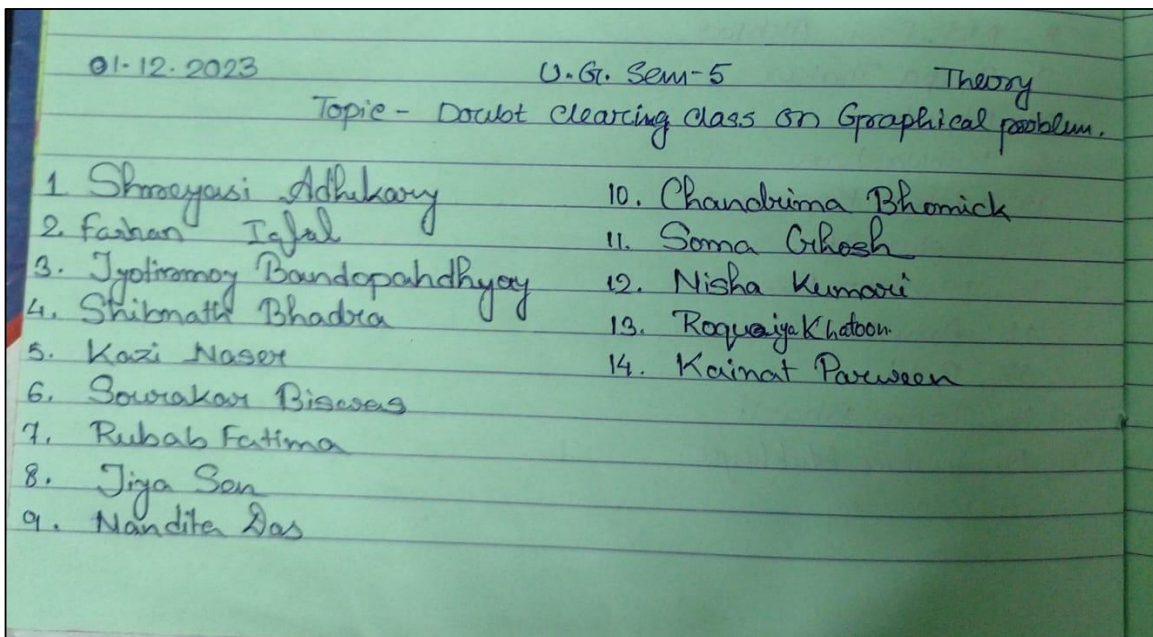 01-12-2023 U.G. Sem-5 Theory
Topic - Doubt clearing class on Graphical problem.
1 Shreyasi Adhikary
2. Farhan Iqbal
3. Jyotirmoy Bandopahdhyay
4. Shibnath Bhadra
5. Kazi Naser
6. Sourakar Biswas
7. Rubab Fatima
8. Jiya Sen
9. Nandita Das
10. Chandrima Bhomick
11. Soma Ghosh
12. Nisha Kumari
13. Roquaiya Khatoon.
14. Kainat Parween